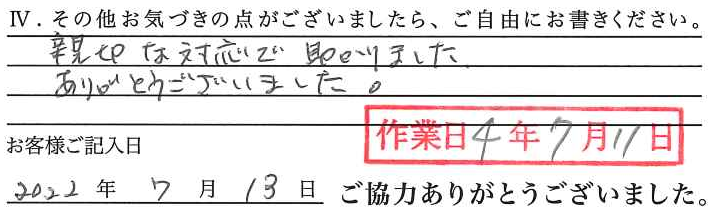 Ⅳ．その他お気づきの点がございましたら、ご自由にお書きください。
親切な対応で助かりました
ありがとうございました。
作業日4年7月11日
お客様ご記入日
2022年7月13日 ご協力ありがとうございました。